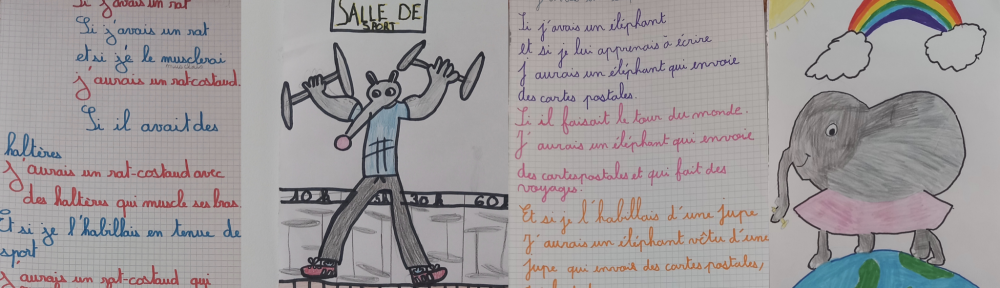 Si j'avais un rat
Si j'avais un rat
et si je le musclerai
j'aurais un rat-costaud.
Si il avait des
haltères
J'aurais un rat-costaud avec
des haltères qui muscle ses bras.
Et si je l'habillais en tenue de
sport
J'aurais un rat-costaud qui
SALLE DE
SPORT
10 A
30 A
60
Si j'avais un éléphant
et si je lui apprenais à écrire
J'aurais un éléphant qui envoie
des cartes postales.
Si il faisait le tour du monde.
J'aurais un éléphant qui envoie
des cartes postales et qui fait des
voyages.
Et si je l'habillais d'une jupe
J'aurais un éléphant vêtu d'une
jupe qui envoie des cartes postales,